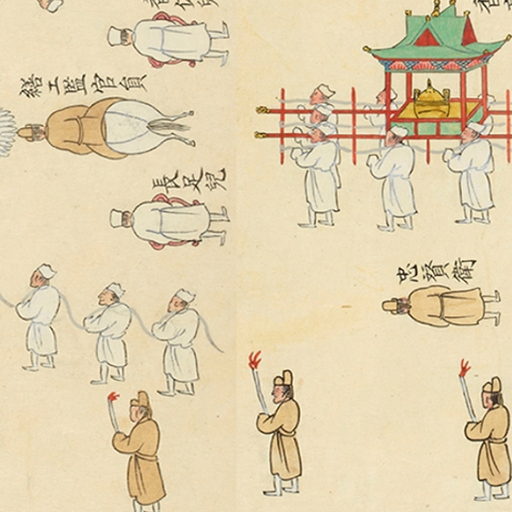 繕工監官員
長足兒
忠贊衛